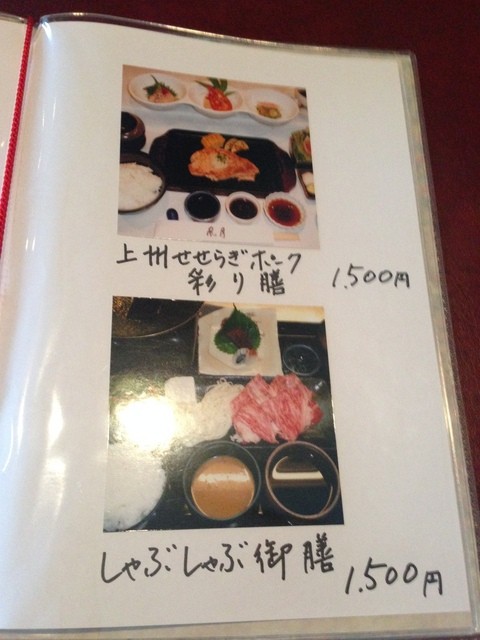 風月
上州せせらぎポーク
彩り膳
1.500円
しゃぶしゃぶ御膳
1.500円